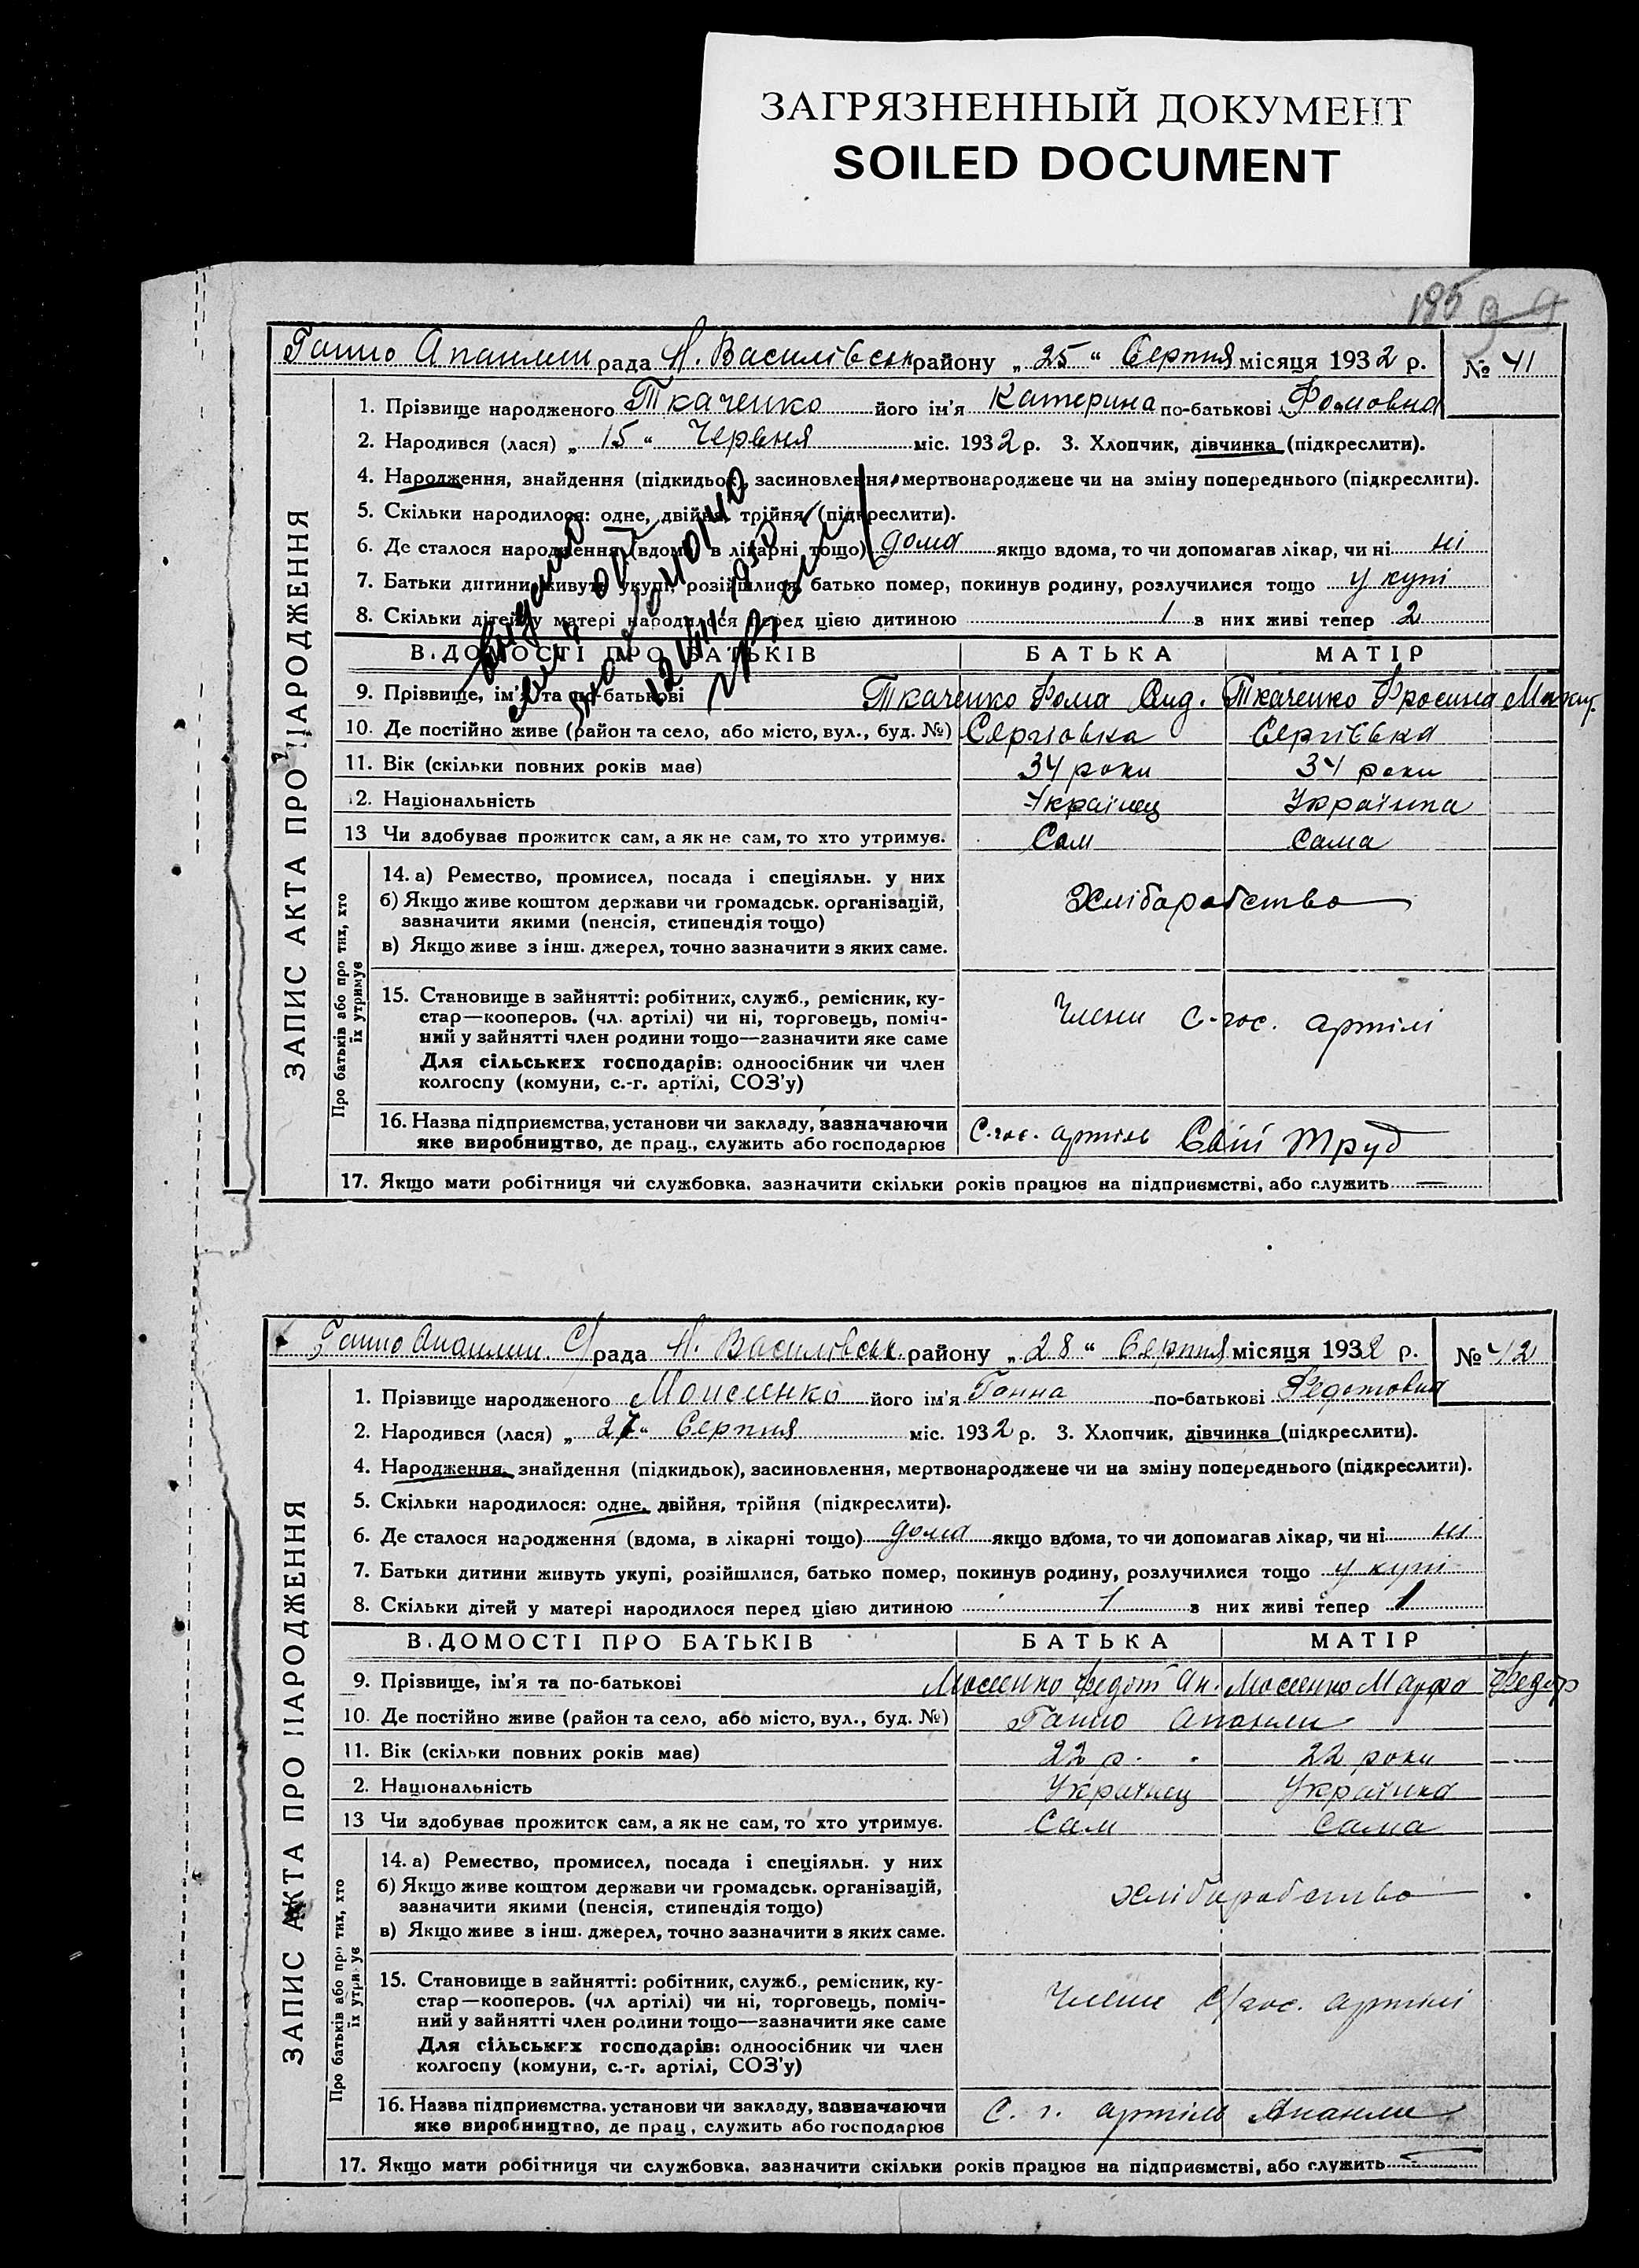 ЗАГРЯЗНЕННЫЙ ДОКУМЕНТ
SOILED DOCUMENT
185
Ганно Апанлин рада Н. Василівськ району „ 25 “ Серпня місяця 1932 р. № 41
ЗАПИС АКТА ПРО НАРОДЖЕННЯ
1. Прізвище народженого Ткаченко його ім'я Катерина по-батькові Фомовна
2. Народився (лася) „ 15 “ Червня міс. 1932 р. 3. Хлопчик, дівчинка (підкреслити).
4. Народження, знайдення (підкидьок), засиновлення, мертвонароджене чи на зміну попереднього (підкреслити).
5. Скільки народилося: одне, двійня, трійня (підкреслити).
6. Де сталося народження (вдома, в лікарні тощо) дома якщо вдома, то чи допомагав лікар, чи ні ні
7. Батьки дитини живуть укупі, розійшлися, батько помер, покинув родину, розлучилися тощо у купі
8. Скільки дітей у матері народилося перед цією дитиною 1 з них живі тепер 2
В.ДОМОСТІ ПРО БАТЬКІВ БАТЬКА МАТІР
9. Прізвище, ім'я та по-батькові Ткаченко Фома Дид. Ткаченко Фросина
10. Де постійно живе (район та село, або місто, вул., буд. №) Сергіовка Сергіївка
11. Вік (скільки повних років має) 34 роки 34 роки
12. Національність Українец Українка
13 Чи здобував прожиток сам, а як не сам, то хто утримує. Сам Сама
Про батьків або про тих, хто їх утримує
14. а) Ремество, промисел, посада і спеціяльн. у них
б) Якщо живе коштом держави чи громадськ. організацій,
зазначити якими (пенсія, стипендія тощо)
в) Якщо живе з інш. джерел, точно зазначити з яких саме.
Хліборобство
15. Становище в зайнятті: робітник, служб., ремісник, ку-
стар—кооперов. (чл. артілі) чи ні, торговець, поміч-
ний у зайнятті член родини тощо—зазначити яке саме
Для сільських господарів: одноосібник чи член
колгоспу (комуни, с.-г. артілі, СОЗ'у)
Члени С-гос. артілі
16. Назва підприємства, установи чи закладу, зазначаючи
яке виробництво, де прац., служить або господарює
С.гос. артіль Свій Труд
17. Якщо мати робітниця чи службовка, зазначити скільки років працює на підприємстві, або служить —
Ганно Апанлин С/рада Н. Василівськ. району „ 28 “ Серпня місяця 1932 р. № 42
ЗАПИС АКТА ПРО НАРОДЖЕННЯ
1. Прізвище народженого Моисеенко його ім'я Ганна по-батькові Федотовна
2. Народився (лася) „ 27 “ Серпня міс. 1932 р. 3. Хлопчик, дівчинка (підкреслити).
4. Народження, знайдення (підкидьок), засиновлення, мертвонароджене чи на зміну попереднього (підкреслити).
5. Скільки народилося: одне, двійня, трійня (підкреслити).
6. Де сталося народження (вдома, в лікарні тощо) дома якщо вдома, то чи допомагав лікар, чи ні ні
7. Батьки дитини живуть укупі, розійшлися, батько помер, покинув родину, розлучилися тощо у купі
8. Скільки дітей у матері народилося перед цією дитиною 1 з них живі тепер 1
В.ДОМОСТІ ПРО БАТЬКІВ БАТЬКА МАТІР
9. Прізвище, ім'я та по-батькові Мосеенко Федот Ан. Мосеенко Марфа Федор
10. Де постійно живе (район та село, або місто, вул., буд. №) Ганно Апанли
11. Вік (скільки повних років має) 22 р. 22 роки
2. Національність Українец Українка
13 Чи здобував прожиток сам, а як не сам, то хто утримує. Сам Сама
Про батьків або про тих, хто їх утримує
14. а) Ремество, промисел, посада і спеціяльн. у них
б) Якщо живе коштом держави чи громадськ. організацій,
зазначити якими (пенсія, стипендія тощо)
в) Якщо живе з інш. джерел, точно зазначити з яких саме.
хліборобство
15. Становище в зайнятті: робітник, служб., ремісник, ку-
стар—кооперов. (чл артілі) чи ні, торговець, поміч-
ний у зайнятті член родини тощо—зазначити яке саме
Для сільських господарів: одноосібник чи член
колгоспу (комуни, с.-г. артілі, СОЗ'у)
Члени С/гос. артілі
16. Назва підприємства, установи чи закладу, зазначаючи
яке виробництво, де прац., служить або господарює
С. г. артіль Апанли
17. Якщо мати робітниця чи службовка, зазначити скільки років працює на підприємстві, або служить —